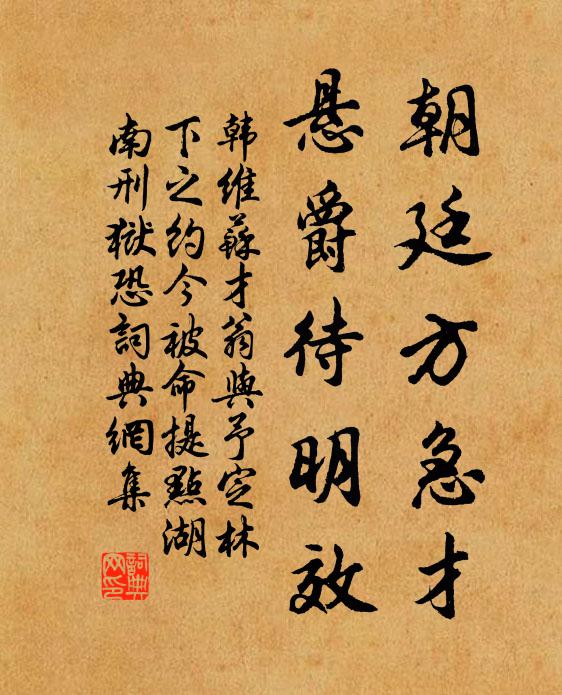 朝廷方急才
悬爵待明效
韩维蘇才翁與予定林
下之约今被命提點湖
南刑獄恐詞典網集
詞典
网印